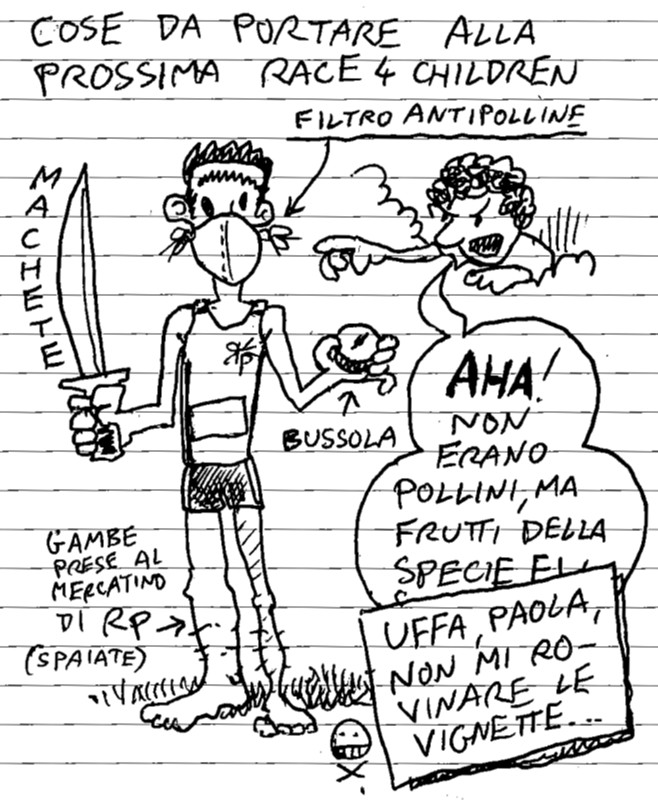 COSE DA PORTARE ALLA
PROSSIMA RACE 4 CHILDREN
FILTRO ANTIPOLLINE
MACHETE
RP
BUSSOLA
AHA!
NON
ERANO
POLLINI, MA
FRUTTI DELLA
SPECIE
GAMBE
PRESE AL
MERCATINO
DI RP
(SPAIATE)
UFFA, PAOLA,
NON MI RO-
VINARE LE
VIGNETTE...